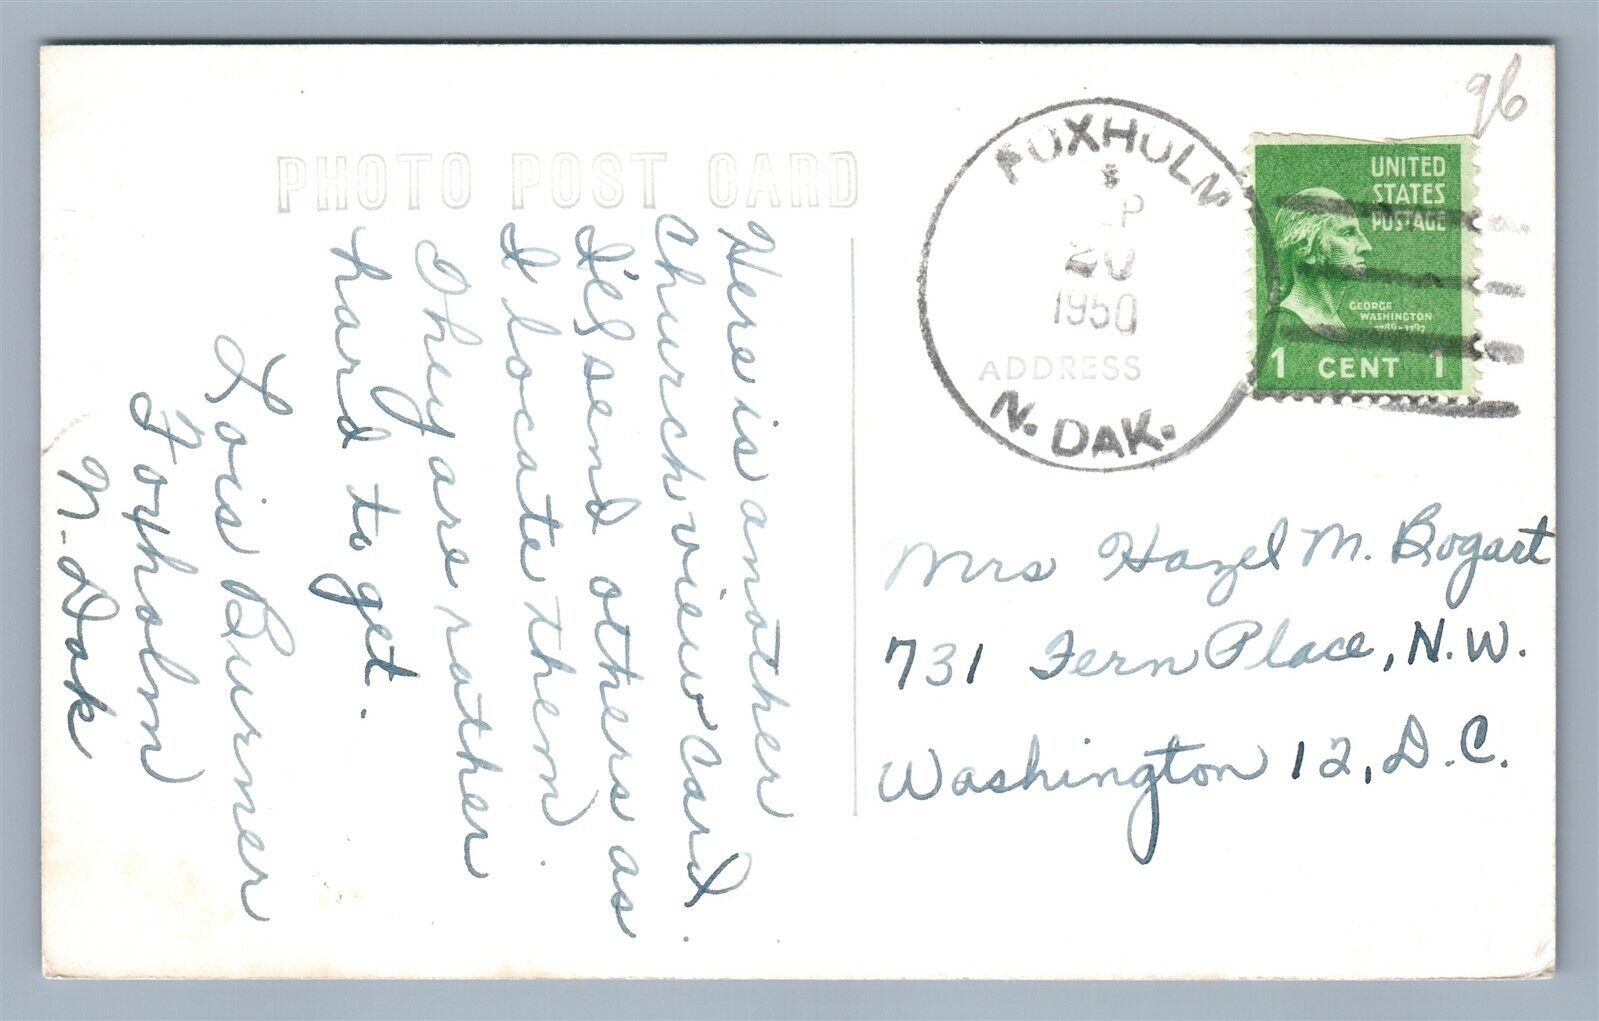 PHOTO POST CARD
Here is another
Church view Card.
I'll send others as
I locate them.
They are rather
hard to get.
Lois Burner
Foxholm
N. Dak
FOXHOLM
SEP
20
1950
ADDRESS
N. DAK.
96
UNITED
STATES
POSTAGE
GEORGE
WASHINGTON
1789-1797
1 CENT 1
Mrs Hazel M. Bogart
731 Fern Place, N.W.
Washington 12, D.C.